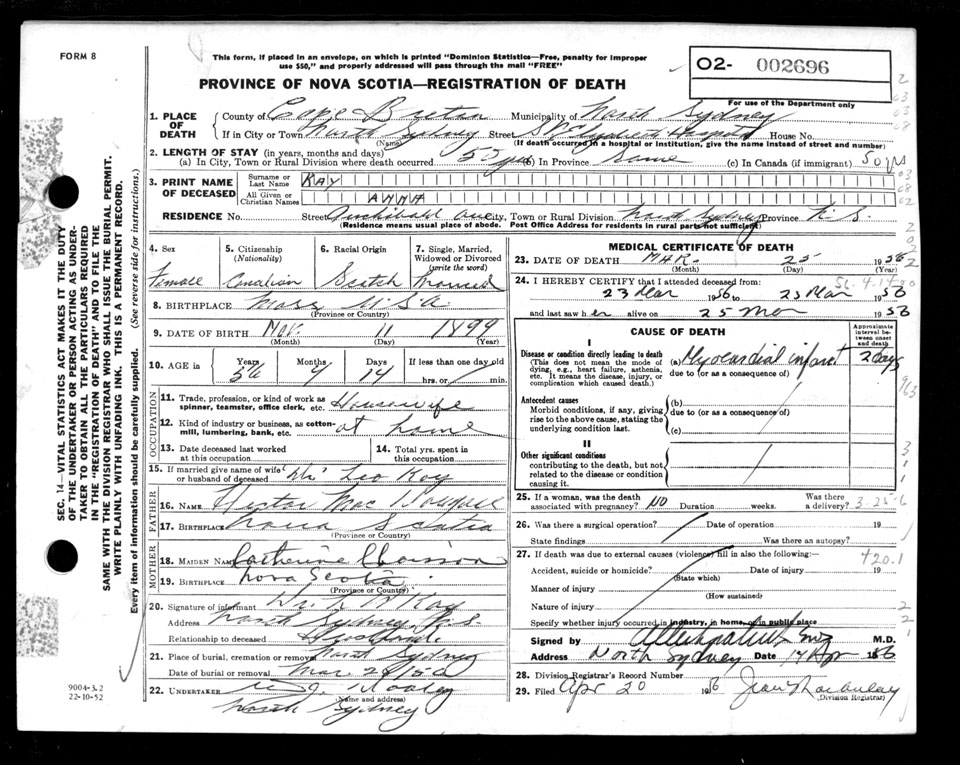 FORM 8
This form, if placed in an envelope, on which is printed "Dominion Statistics—Free, penalty for improper
use $50," and properly addressed will pass through the mail "FREE"
PROVINCE OF NOVA SCOTIA—REGISTRATION OF DEATH
O2- 002696
For use of the Department only
1. PLACE OF DEATH
County of Cape Breton Municipality of North Sydney
If in City or Town North Sydney Street Hospital House No.
(Name) (If death occurred in a hospital or institution, give the name instead of street and number)
2. LENGTH OF STAY (in years, months and days)
(a) In City, Town or Rural Division where death occurred In Province Same (c) In Canada (if immigrant) 50 yrs
3. PRINT NAME OF DECEASED
Surname or Last Name KAY
All Given or Christian Names ANNA
RESIDENCE No. Street Archibald Ave City, Town or Rural Division North Sydney Province N.S.
(Residence means usual place of abode. Post Office Address for residents in rural parts not sufficient)
4. Sex
Female
5. Citizenship
(Nationality)
Canadian
6. Racial Origin
Scotch
7. Single, Married, Widowed or Divorced
(write the word)
Married
8. BIRTHPLACE Mass U.S.A.
(Province or Country)
9. DATE OF BIRTH Nov. 11 1899
(Month) (Day) (Year)
10. AGE in
Years 56 Months 4 Days 14
If less than one day old
hrs. or min.
OCCUPATION
11. Trade, profession, or kind of work as
spinner, teamster, office clerk, etc. Housewife
12. Kind of industry or business, as cotton-
mill, lumbering, bank, etc. at home
13. Date deceased last worked
at this occupation
14. Total yrs. spent in
this occupation
15. If married give name of wife
or husband of deceased Leo Kay
FATHER
16. NAME Hector Mac
17. BIRTHPLACE Nova Scotia
(Province or Country)
MOTHER
18. MAIDEN NAME Catherine
19. BIRTHPLACE Nova Scotia
(Province or Country)
20. Signature of informant
Address North Sydney, N.S.
Relationship to deceased Husband.
21. Place of burial, cremation or removal North Sydney
Date of burial or removal Mar
22. UNDERTAKER
(Name and address)
North Sydney
MEDICAL CERTIFICATE OF DEATH
23. DATE OF DEATH MAR. 25 1956
(Month) (Day) (Year)
24. I HEREBY CERTIFY that I attended deceased from:
23 Mar 1956 to 25 Mar 1956
and last saw her alive on 25 Mar 1956
CAUSE OF DEATH
Approximate interval between onset and death
I
Disease or condition directly leading to death
(This does not mean the mode of
dying, e.g., heart failure, asthenia,
etc. It means the disease, injury, or
complication which caused death.)
(a) Myocardial infarct 2 days
due to (or as a consequence of)
Antecedent causes
Morbid conditions, if any, giving
rise to the above cause, stating the
underlying condition last.
(b)
due to (or as a consequence of)
(c)
II
Other significant conditions
contributing to the death, but not
related to the disease or condition
causing it.
25. If a woman, was the death
associated with pregnancy? NO Duration weeks. Was there
a delivery?
26. Was there a surgical operation? Date of operation 19
State findings Was there an autopsy?
27. If death was due to external causes (violence) fill in also the following:— 420.1
Accident, suicide or homicide? Date of injury 19
(State which)
Manner of injury
(How sustained)
Nature of injury
Specify whether injury occurred in industry, in home, or in public place
Signed by M.D.
Address North Sydney Date 17 Apr 1956
28. Division Registrar's Record Number
29. Filed Apr 20 1956 Jean
(Division Registrar)
SEC. 14—VITAL STATISTICS ACT MAKES IT THE DUTY
OF THE UNDERTAKER OR PERSON ACTING AS UNDER-
TAKER TO OBTAIN ALL THE PARTICULARS REQUIRED
IN THE "REGISTRATION OF DEATH" AND TO FILE THE
SAME WITH THE DIVISION REGISTRAR WHO SHALL ISSUE THE BURIAL PERMIT.
WRITE PLAINLY WITH UNFADING INK. THIS IS A PERMANENT RECORD.
Every item of information should be carefully supplied. (See reverse side for instructions.)
9004-3.2
22-10-52